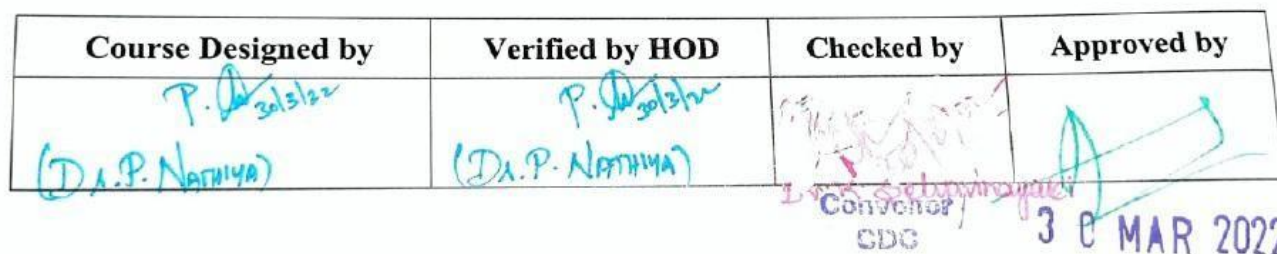 Course Designed by Verified by HOD Checked by Approved by
P. 30/3/22 P. 30/3/22
(Dr. P. NATHIYA) (Dr. P. NATHIYA)
Convenor
CDC
30 MAR 2022